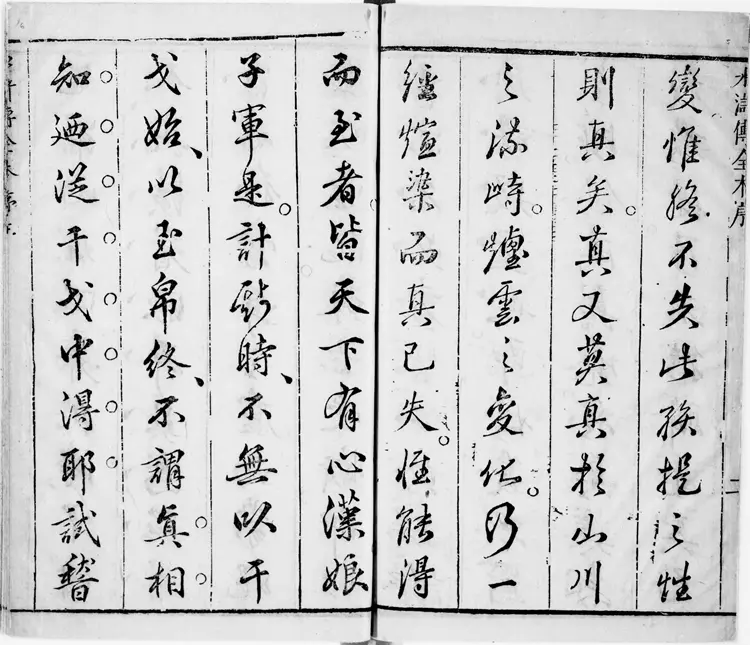 水滸傳全本序
二
變惟終不失此孩提之性
則真矣。真又莫真於山川
之流峙。煙雲之變化。乃一
經煊染而真已失。惟能得
而至者皆天下有心漢娘
子軍是。計時、不無以干
戈始、以玉帛終、不謂真相
知廼從干戈中得耶試稽